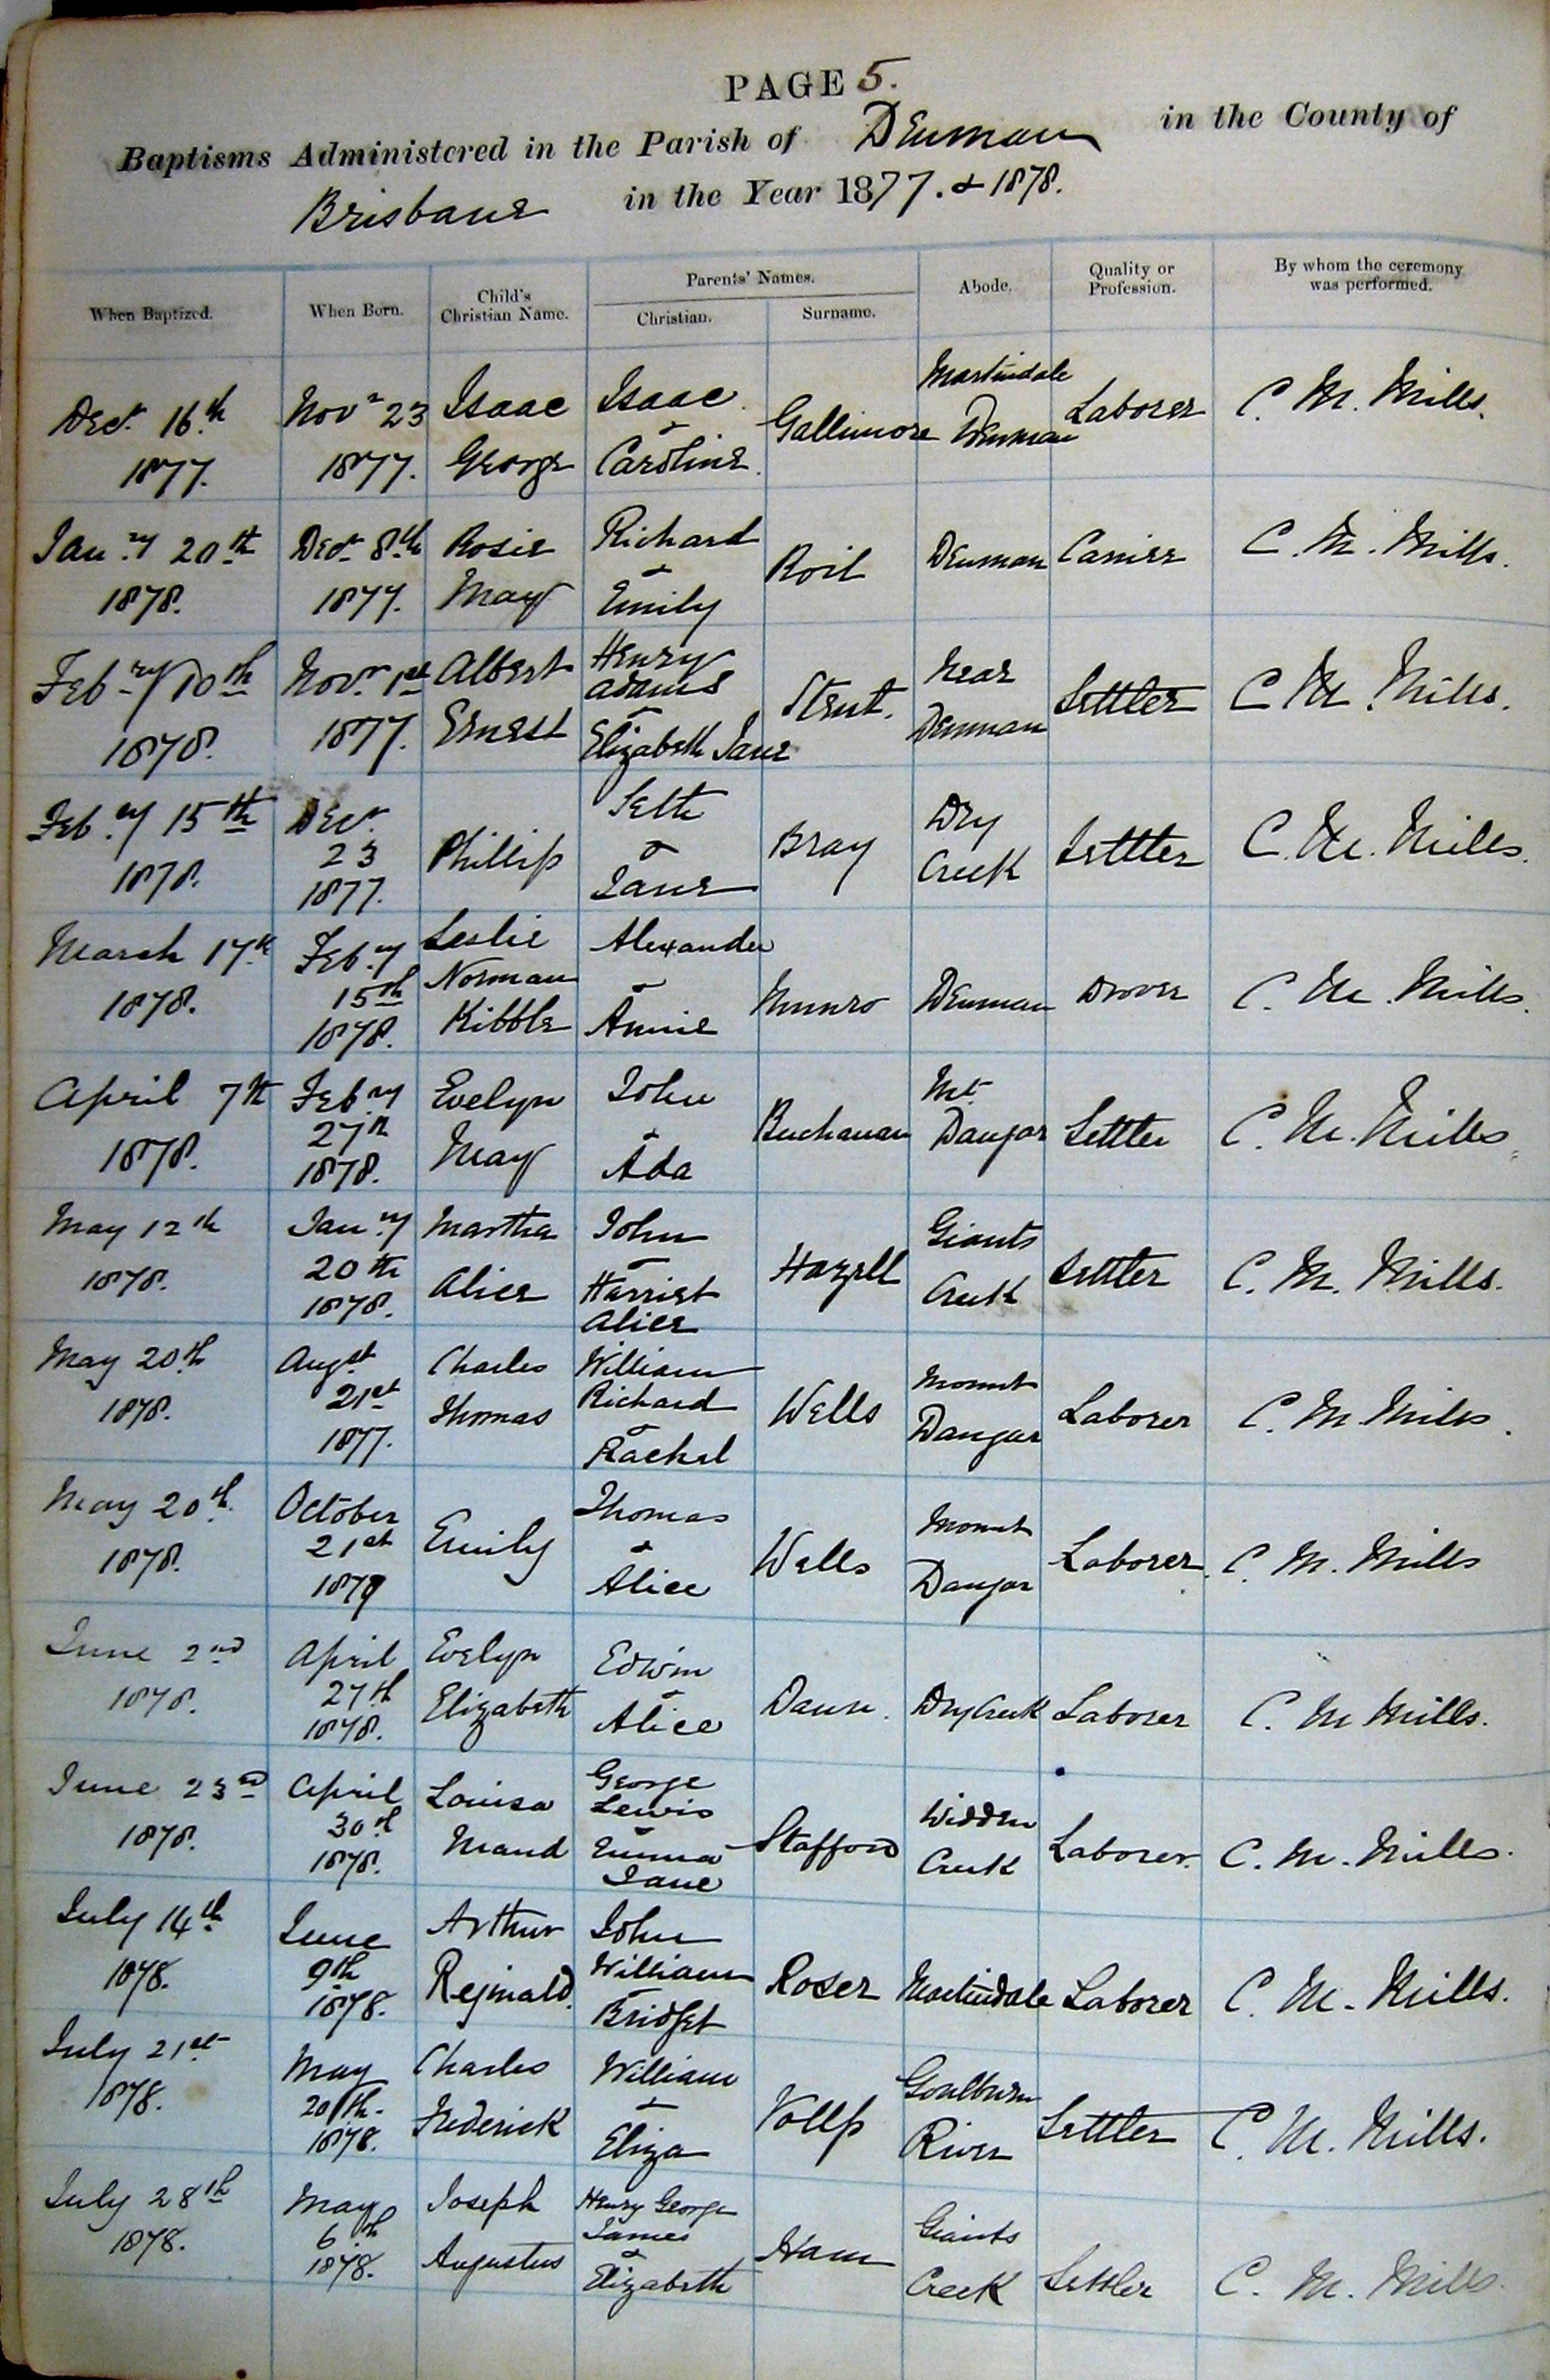 PAGE 5.
Baptisms Administered in the Parish of Denman in the County of
Brisbane in the Year 1877. & 1878.
When Baptized.
When Born.
Child's
Christian Name.
Parents' Names.
Christian.
Surname.
Abode.
Quality or
Profession.
By whom the ceremony
was performed.
Decr. 16th
1877.
Novr 23
1877.
Isaac
George
Isaac
&
Caroline
Gallimore
Martindale
Denman
Laborer
C. M. Mills.
Jany. 20th
1878.
Decr. 8th
1877.
Rosie
May
Richard
&
Emily
Roil
Denman
Carrier
C. M. Mills.
Feby 10th
1878.
Novr. 1st
1877.
Albert
Ernest
Henry
Adams
&
Elizabeth Jane
Denman
Near
Settler
C M. Mills.
Feby. 15th
1878.
Decr.
23
1877.
Phillip
Seth
&
Jane
Bray
Dry
Creek
Settler
C. M. Mills.
March 17th
1878.
Feby.
15th
1878.
Leslie
Norman
Kibble
Alexander
&
Annie
Munro
Denman
Drover
C. M. Mills.
April 7th
1878.
Feby.
27th
1878.
Evelyn
May
John
&
Ada
Buchanan
Mt.
Dangar
Settler
C. M. Mills.
May 12th
1878.
Jany.
20th
1878.
Martha
Alice
John
&
Harriet
Alice
Hazell
Giants
Creek
Settler
C. M. Mills.
May 20th
1878.
Augst.
21st
1877.
Charles
Thomas
William
Richard
&
Rachel
Wells
Mount
Dangar
Laborer
C. M. Mills.
May 20th.
1878.
October
21st
1877
Emily
Thomas
&
Alice
Wells
Mount
Dangar
Laborer
C. M. Mills
June 2nd
1878.
April
27th
1878.
Evelyn
Elizabeth
Edwin
&
Alice
Dry Creek
Laborer
C. M Mills.
June 23rd
1878.
April
30th
1878.
Louisa
Maud
George
Lewis
&
Emma
Jane
Stafford
Widden
Creek
Laborer.
C. M. Mills.
July 14th
1878.
June
9th
1878.
Arthur
Reginald.
John
William
&
Bridget
Roser
Martindale
Laborer
C. M. Mills.
July 21st
1878.
May
20th.
1878.
Charles
Frederick
William
&
Eliza
Vollp
Goulburn
River
Settler
C. M. Mills.
July 28th
1878.
May
6th
1878.
Joseph
Augustus
Henry George
James
&
Elizabeth
Ham
Giants
Creek
Settler
C. M. Mills.